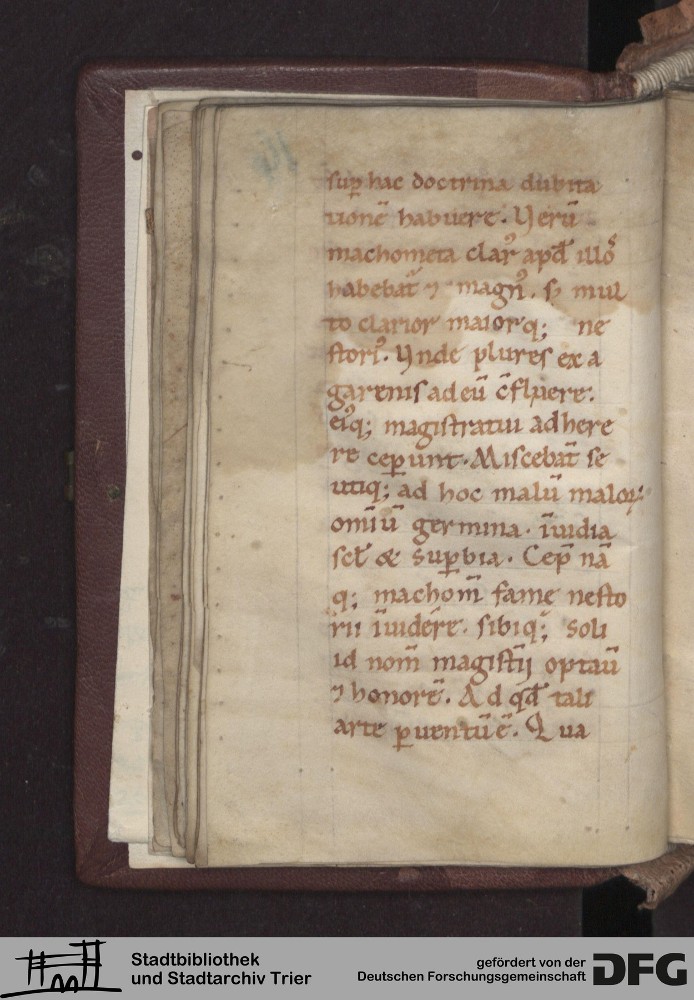 sup̄ hac doctrina dubita
tionē habuere. Verū
machometa clarꝰ apd̄ illo᷒
habebat᷒ ⁊ magnꝰ. sʒ mul
to clarior maiorq; ne
stori᷒. Vnde plures ex a
garenis ad eū c̄fluere.
eiꝰq; magistratui adhere
re ceper̄unt. Miscebat̄ se
utiq; ad hoc malū maloꝝ
omīū germina. īuidia
scł & suꝑbia. Cep̄ nā
q; machom̄ fame nesto
rii īuidēre. sibiq; soli
id nom̄ magist̄ij optaū
⁊ honorē. Ad qd̄ tali
arte ꝑuentū ē. Qua
Stadtbibliothek
und Stadtarchiv Trier
gefördert von der
Deutschen Forschungsgemeinschaft
DFG